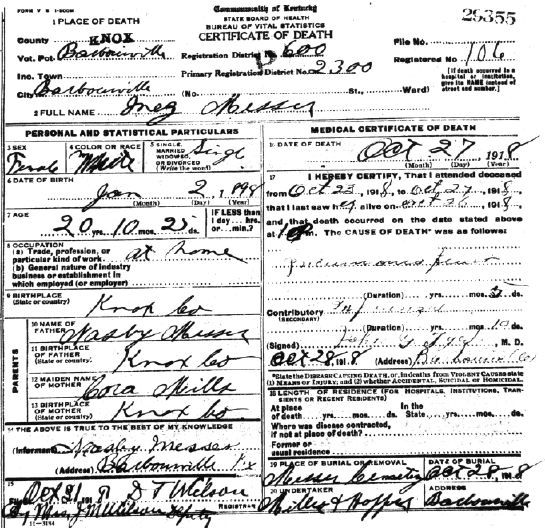 FORM V S 1-500M
Commonwealth of Kentucky
STATE BOARD OF HEALTH
BUREAU OF VITAL STATISTICS
CERTIFICATE OF DEATH
29355
1 PLACE OF DEATH
County KNOX
Vot. Pct Barbourville
Registration District No. 600
File No.
Inc. Town
Primary Registration District No. 2300
Registered No 106
City Barbourville (No St., Ward)
(If death occurred in a hospital or institution, give its NAME instead of street and number.)
2 FULL NAME Messer
PERSONAL AND STATISTICAL PARTICULARS
MEDICAL CERTIFICATE OF DEATH
3 SEX Female
4 COLOR OR RACE White
5 SINGLE, MARRIED WIDOWED, OR DIVORCED (Write the word) Single
16 DATE OF DEATH Oct 27 1918
(Month) (Day) (Year)
6 DATE OF BIRTH Jan 2 1898
(Month) (Day) (Year)
7 AGE 20 10 25
IF LESS than 1 day....hrs. or....min.?
17 I HEREBY CERTIFY, That I attended deceased
from Oct 23, 1918, to Oct 27, 1918,
that I last saw her alive on Oct 26, 1918,
and that death occurred on the date stated above
at m. The CAUSE OF DEATH* was as follows:
8 OCCUPATION
(a) Trade, profession, or particular kind of work. at home
(b) General nature of industry business or establishment in which employed (or employer)
(Duration) yrs. mos. ds.
9 BIRTHPLACE (State or country) Knox Co
Contributory Influenza
(SECONDARY)
(Duration) yrs. mos. 10 ds.
10 NAME OF FATHER Messer
(Signed) M. D.
Oct 28, 1918 (Address) Barbourville
PARENTS
11 BIRTHPLACE OF FATHER (State or country) Knox Co
*State the DISEASE CAUSING DEATH, or, in deaths from VIOLENT CAUSES state (1) MEANS OF INJURY; and (2) whether ACCIDENTAL, SUICIDAL OR HOMICIDAL.
12 MAIDEN NAME OF MOTHER Cora Mills
18 LENGTH OF RESIDENCE (FOR HOSPITALS, INSTITUTIONS, TRANSIENTS OR RECENT RESIDENTS)
At place of death yrs. mos. ds.
In the State yrs. mos. ds.
13 BIRTHPLACE OF MOTHER (State or country) Knox Co
Where was disease contracted, if not at place of death?
14 THE ABOVE IS TRUE TO THE BEST OF MY KNOWLEDGE
Former or usual residence
(Informant) Messer
(Address) Barbourville Ky
19 PLACE OF BURIAL OR REMOVAL Messer Cemetery
DATE OF BURIAL Oct 28 - 8
15
Oct 31, 191 D T Wilson
REGISTRAR
By Mrs. J M Wilson Deputy
20 UNDERTAKER Miller & Hopper
ADDRESS Barbourville
11-3184